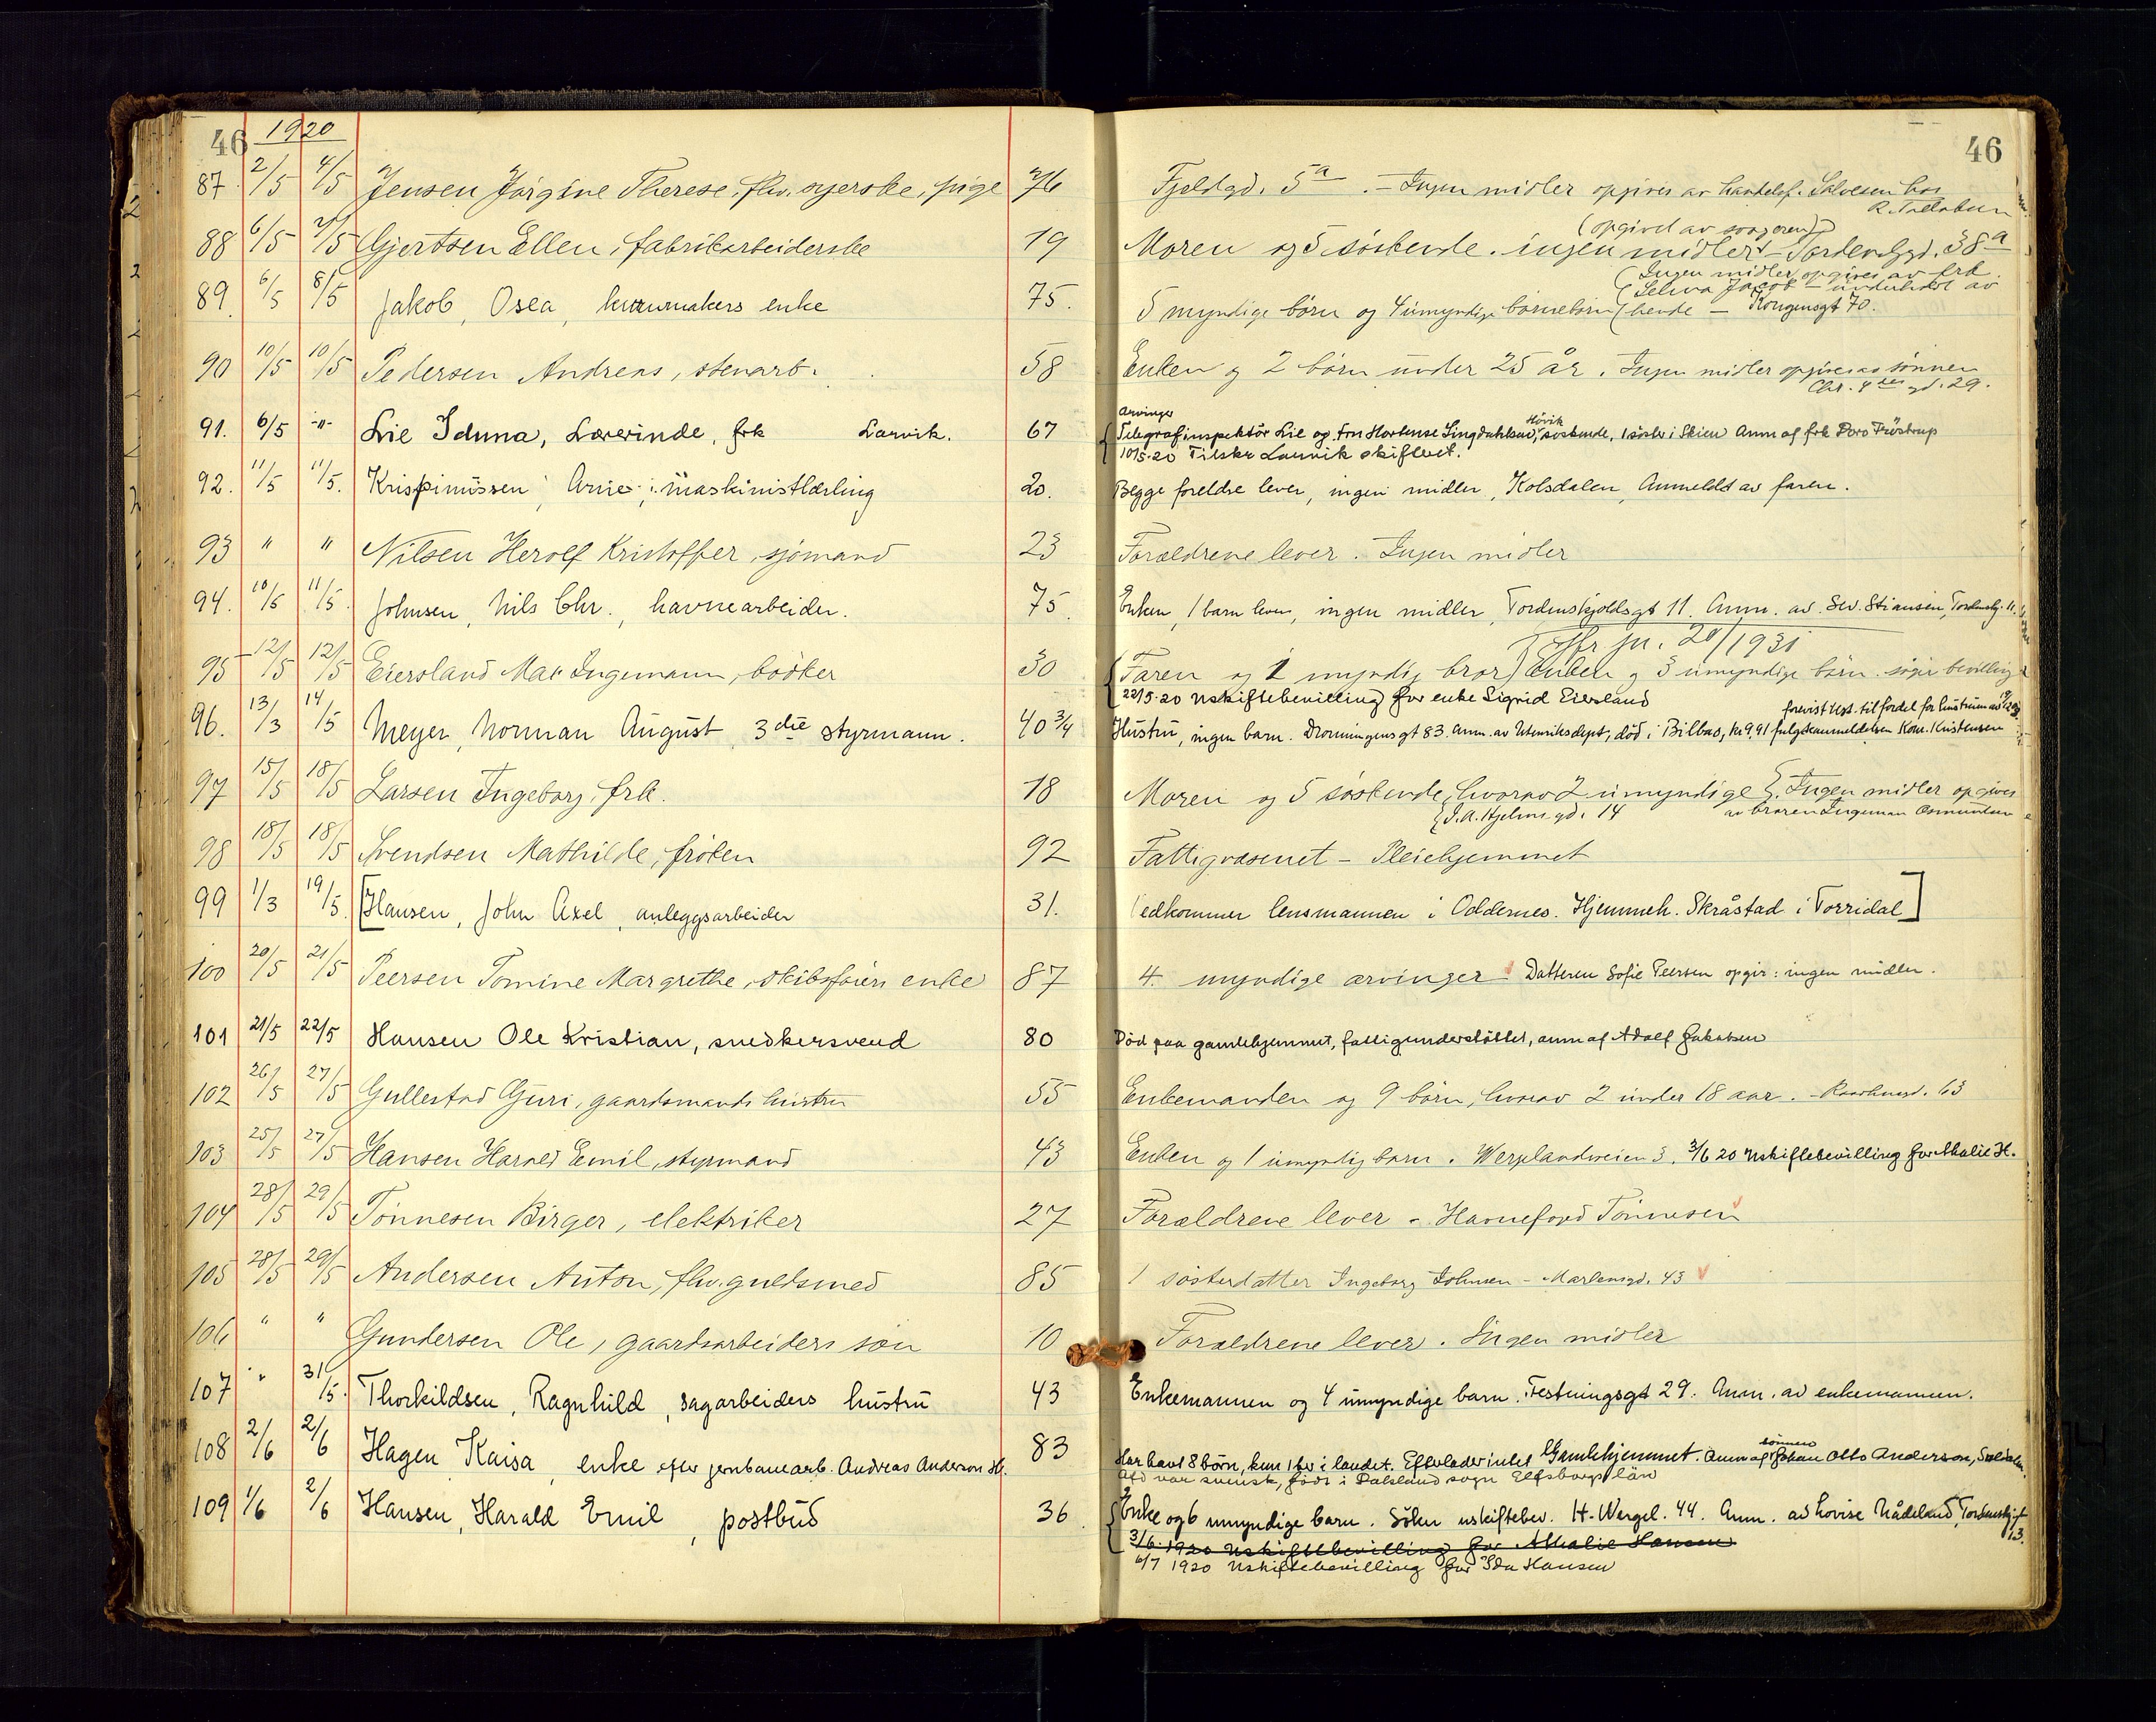 46 1920 46
87. 2/5 4/5 Jensen Jörgine Therese, fhv. syerske, pige 76 Fjeldgd. 5a. - Ingen midler opgives av handelsf. Salvesen hos
R.
88 6/5 7/5 Gjertsen Ellen, fabrikarbeiderske 19 Moren og 5 söskende. ingen midler - Tordenskgd. 38a
(opgivet av svogeren)
89. 6/5 8/5 Jakob, Osea, enke 75. 5 myndige börn og 4 umyndige börnebörn
(Ingen midler opgives av frk.
(Selma Jacob - underholdt av
(hende - Kongensgt 70.
90 10/5 10/5 Pedersen Andreas, stenarb. 58 Enken og 2 börn under 25 år. Ingen midler opgives av sönnen
Chr. 4des gd. 29.
91. 6/5 -"- Lie Iduna, Lærerinde, frk Larvik. 67 Arvinger
Telegrafinspektör Lie og Fru Hortense Lingdahlsen, Hövik söskende, 1 söster i Skien Anm af frk Doro Tröstrup
10/5-20 Tilskr Larvik skifteret.
92. 11/5 11/5. Krispinussen, Arne, maskinistlærling 20. Begge foreldre lever, ingen midler, Kolsdalen, Anmeldt av faren.
93 " " Nilsen Herolf Kristoffer, sjömand 23 Forældrene lever. Ingen midler
94. 10/5 11/5. Johnsen, Nils Chr., havnearbeider. 75. Enken, 1 barn lever, ingen midler, Tordenskjoldsgt 11. Anm. av Sev. Stiansen, Tordenskj. 11.
95 12/5 12/5 Eiersland Max Ingemann, bödker 30 Faren og 1 myndig bror) Enken og 3 umyndige börn. søger bevilling
Jfr jn. 20/1931
22/5-20 Uskiftebevilling for enke Sigrid Eiersland
96. 13/3 14/5 Meyer, Norman August, 3die styrmann. 40 3/4 Hustru, ingen barn. Dronningensgt 83. Anm. av Utenriksdept, död i Bilbao, kr 9,91 fulgte anmeldelsen Kom. Kristensen
forevist test. til fordel for hustruen av
97 15/5 18/5 Larsen Ingeborg, frk. 18 Moren og 5 söskende, hvorav 2 umyndige }. Ingen midler opgives
{J.A. Hjelms gd. 14 av broren Ingeman Osmundsen
98 18/5 18/5 Svendsen Mathilde, fröken 92 Fattigvæsenet - Pleiehjemmet
99 1/3 19/5. [Hansen, John Axel, anleggsarbeider 31. Vedkommer lensmannen i Oddernes. Hjemmeh. Skråstad i Torridal]
100 20/5 21/5 Peersen Tomine Margrethe, skibsförers enke 87 4 myndige arvinger - Datteren Sofie Peersen opgir: ingen midler.
101 21/5 22/5 Hansen Ole Kristian, snedkersvend 80 Död paa gamlehjemmet, fattigunderstöttet, anm af Adolf Jakobsen
102 26/5 27/5 Gullestad Guri, gaardsmands hustru 55 Enkemanden og 9 börn, hvorav 2 under 18 aar. - Raadhusgd. 63
103 25/5 27/5 Hansen Harald Emil, styrmand 43 Enken og 1 umyndig barn. Wergelandsveien 3. 3/6 20 Uskiftebevilling for Athalie H.
104 28/5 29/5 Tönnesen Birger, elektriker 27 Forældrene lever - Havnefoged Tönnesen
105 28/5 29/5 Andersen Anton, fhv. guldsmed 85 1 sösterdatter Ingeborg Johnsen - Markensgd. 43
106 " " Gundersen Ole, gaardsarbeiders sön 10 Forældrene lever. Ingen midler
107 " 31/5. Thorkildsen, Ragnhild, sagarbeiders hustru 43 Enkemannen og 4 umyndige barn. Festningsgt 29. Anm. av enkemannen.
108 2/6 2/6 Hagen Kaisa, enke efter jernbanearb. Andreas Anderson H. 83 Har havt 8 börn, kun 1 lev i landet. Efterlader intet Gamlehjemmet. Anm af sönnen Johan Otto Anderson,
Afd var svensk, födt i Dalsland sogn Elfsborgs län
109 1/6 2/6 Hansen, Harald Emil, postbud 36 Enke og 6 umyndige barn. Söker uskiftebev. H. Wergel. 44. Anm. av Lovise Nådeland, Tordenskj.gt
13.
3/6. 1920 Uskiftebevilling for Athalie Hansen
6/7 1920 Uskiftebevilling for Ida Hansen